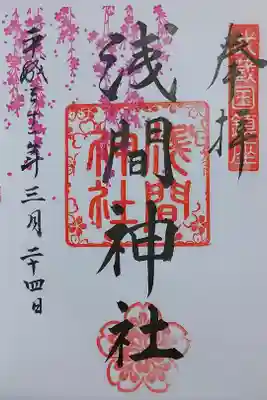 奉拝
武蔵国鎮座
浅間神社
浅間神社
平成三十一年三月二十四日